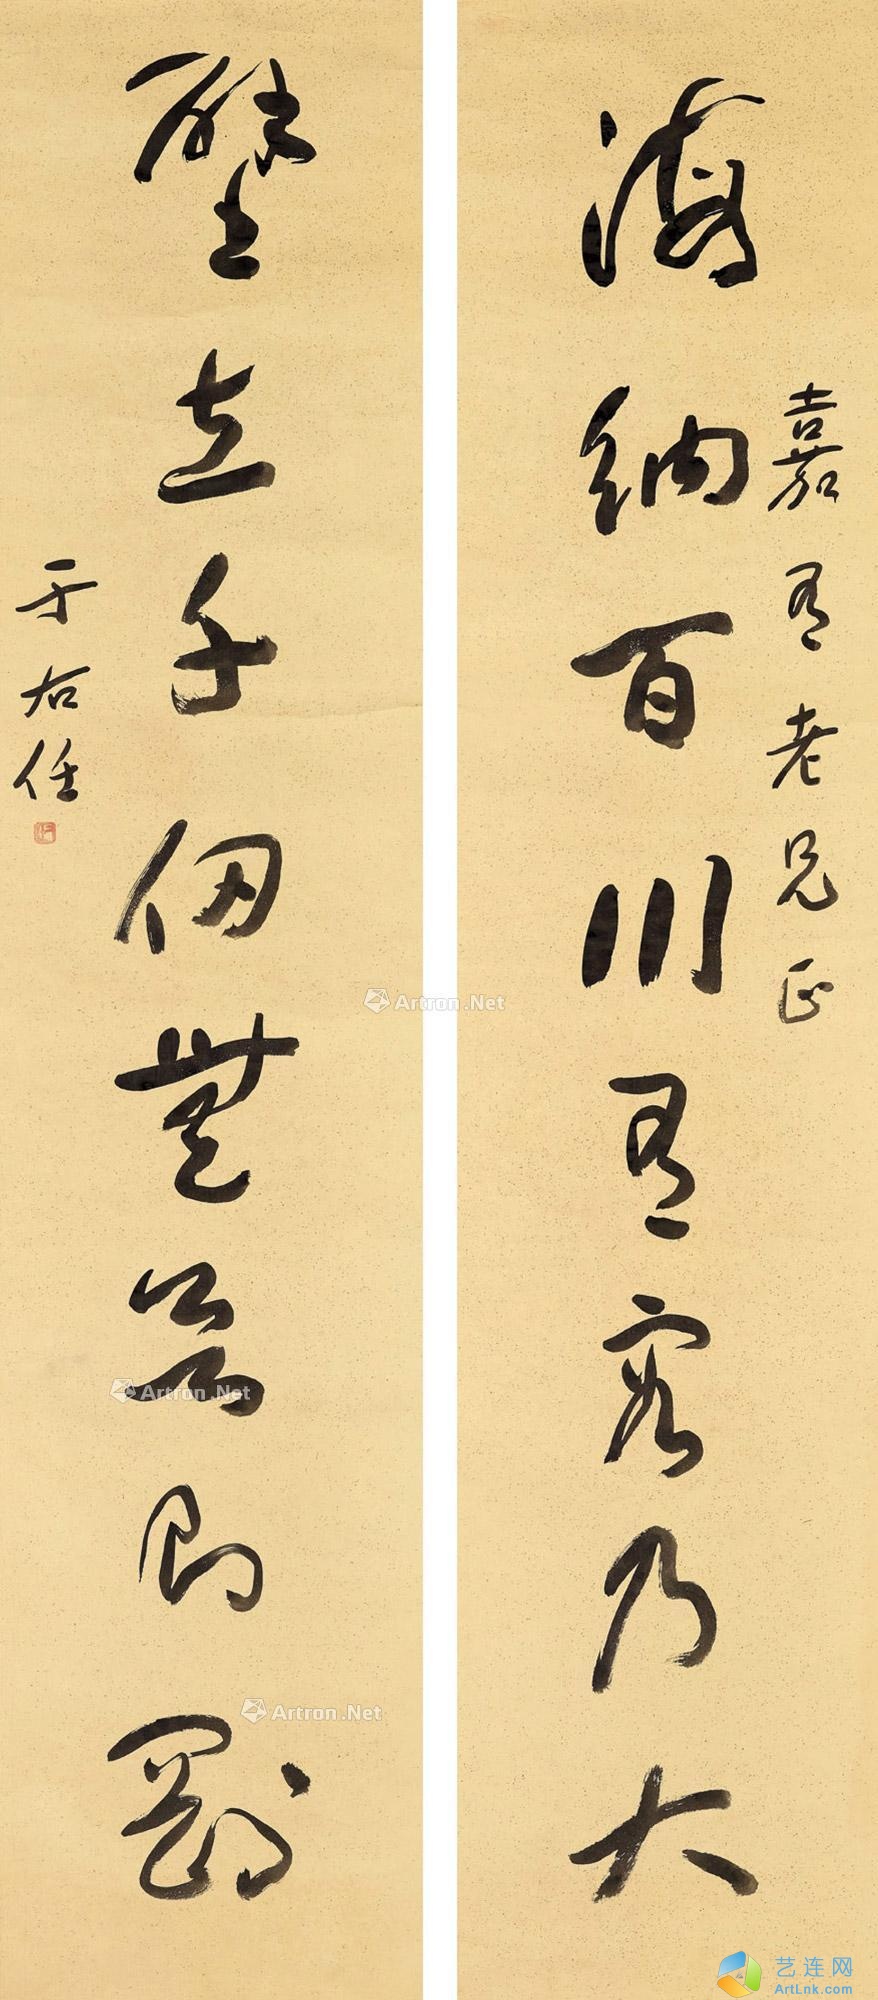 海納百川有容乃大
嘉有老兄正
壁立千仞無欲則剛
于右任
Artron.Net
Artron.Net
Artron.Net
艺连网
ArtLnk.com